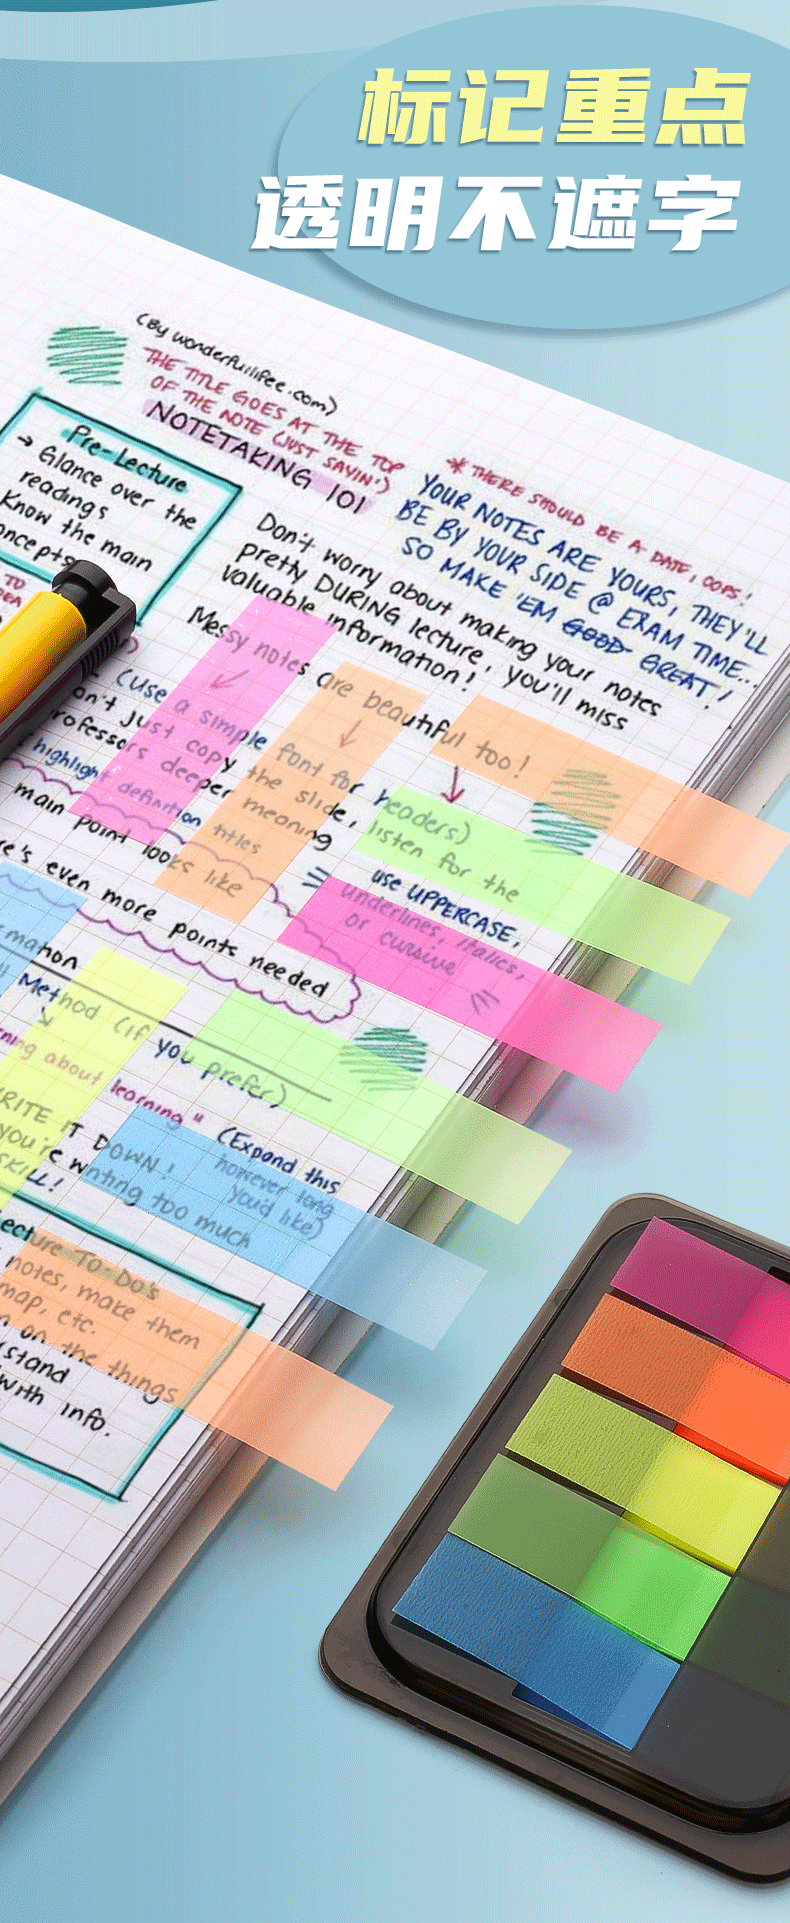 标记重点
透明不遮字
(By wonderfurlifee.com)
THE TITLE GOES AT THE TOP
OF THE NOTE (JUST SAYIN')
NOTETAKING 101
Pre-Lecture
→ Glance over the
readings
Know the main
TO
* THERE SHOULD BE A DATE, OOPS!
YOUR NOTES ARE YOURS, THEY'LL
BE BY YOUR SIDE @ EXAM TIME...
SO MAKE 'EM GOOD GREAT!
Don't worry about making your notes
pretty DURING lecture, you'll miss
valuable information!
Messy notes are beautiful too!
(Use a simple font for headers)
just copy the slide, listen for the
professors deeper meaning
highlight definition titles
main point looks like
even more points needed
use UPPERCASE,
underlines, italics,
or cursive
Method (if you prefer)
about learning"
(Expand this
however long
you'd like)
WRITE IT DOWN!
you're writing too much
SKILL!
Lecture To-Do's
notes, make them
map, etc.
on the things
with info.